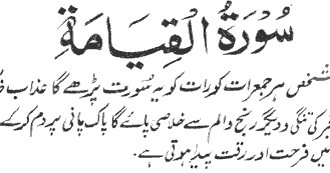 سُورَةُ الْقِيَامَةِ
شخص ہر جمعرات کو رات کو یہ سُورت پڑھے گا عذاب
قبر کی تنگی و دیگر رنج و الم سے خلاصی پائے گا پاک پانی پر دم کر کے
میں فرحت اور رقت پیدا ہوتی ہے۔